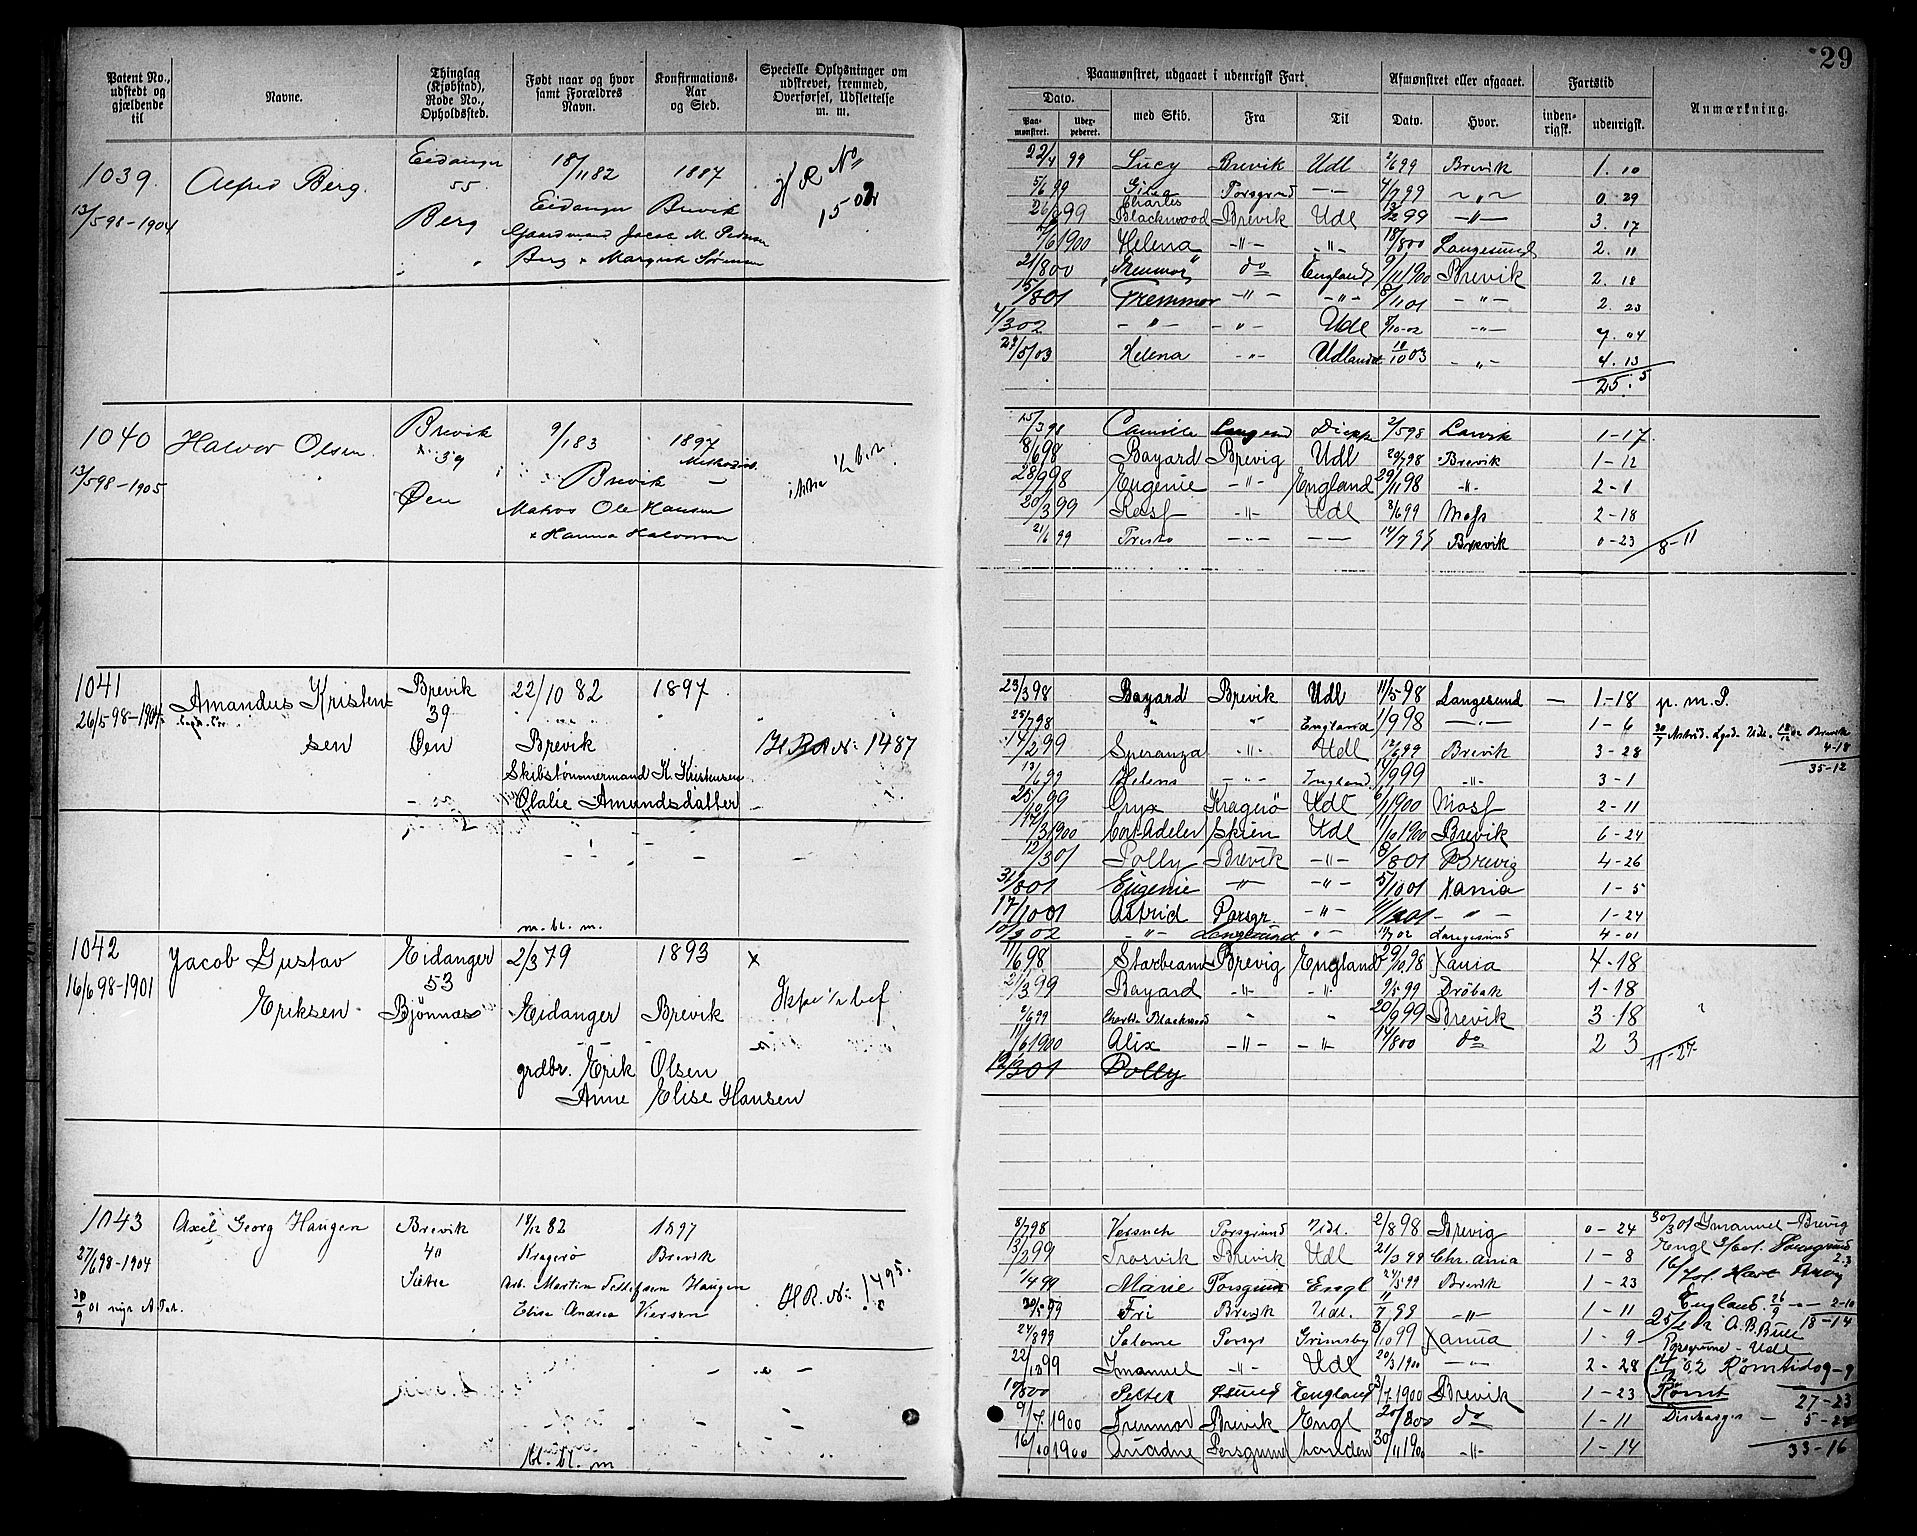 29
Patent No., udstedt og gjældende til
Navne.
Thinglag (Kjøbstad), Rode No., Opholdssted.
Født naar og hvor samt Forældres Navn.
Konfirmations-Aar og Sted.
Specielle Oplysninger om udskrevet, fremmed, Overførsel, Udslettelse m. m.
Paamønstret, udgaaet i udenrigsk Fart
Afmønstret eller afgaaet.
Fartstid
Anmærkning.
Dato.
Paa-mønstret.
med Skib.
Fra
Til
Dato.
Hvor.
inden-rigsk.
udenrigsk.
1039.
13/5 98-1904
Alfred Berg.
Eidanger
55
Berg
18/11 82
Eidanger
Gaardmand Jacob M. Pedersen
Berg & Margrete Sørensen
1887
Brevik
H R No
1502
22/4 99 Lucy Brevik Udl 2/6 99 Brevik 1. 10
5/6 99 Porsgrund 4/7 99 0. 29
Charles Blackwood Brevik Udl 3. 17
Helena 18/8 00 Langesund 2. 11
21/8 00 do England 9/11 1900 Brevik 2. 18
15/8 01 Tremmor 8/11 01 2. 23
4/3 02 Udl 8/10-02 7. 04
29/5 03 Helena Udlandet 12/10 03 4. 13
25. 5
1040
13/5 98-1905
Halvor Olsen.
Brevik
39
Øen
9/1 83
Brevik
Matros Ole Hansen
& Hanna Halvorsen
1897
Methodist.
15/3 98 Camilla Diepp 2/5 98 Larvik 1-17
8/6 98 Bayard Brevig Udl 20/7 98 Brevik 1-12
28/9 98 Eugenie -"- England 29/11 98 -"- 2-1
20/3 99 -"- Udl 8/6 99 Moss 2-18
21/6 99 14/7 99 Brevik 0-23
8-11
1041
26/5 98-1904
Amandus Kristen-
sen
Brevik
39
Øen
22/10 82
Brevik
Skibstømmermand K. Kristensen
Olalie Amundsdatter
1897
H R No 1487
23/3 98 Bayard Brevik Udl 11/5 98 Langesund - 1-18 p. m. P.
25/7 98 " " England 1/9 98 1-6
14/2 99 Speranza -"- Udl 12/6 99 Brevik 3-28
4-18
35-12
13/6 99 Helena -"- England 14/9 99 -"- 3-1
25/10 99 Onyx Kragerø Udl 6/1 1900 Moss 2-11
17/3 1900 Cort Adeler Skien Udl 11/10 1900 Brevik 6-24
12/3 01 Polly Brevik -"- 8/8 01 Brevig 4-26
31/8 01 Eugenie -"- -"- 5/10 01 Xania 1-5
17/10 01 Astrid Porsgr. -"- - " - 1-24
-"- Langesund Langesund 4-01
m. bl. m.
1042
16/6 98-1901
Jacob Gustav
Eriksen
Eidanger
53
Bjønnes
2/3 79
Eidanger
grdbr. Erik Olsen
Anne Elise Hansen
1893
Brevik
x
11/6 98 Starbeam Brevig England 29/10 98 Xania 4-18
21/3 99 Bayard -"- -"- 9/5 99 Drøbak 1-18
2/6 99 Charles Blackwood 20/9 99 Brevik 3-18
11/6 1900 Alix -"- -"- 14/8 00 do 2 3
12/3 01 Polly
11-27
1043
27/6 98-1904
30/9 01 nyt A. Pat.
Axel Georg Haugen
Brevik
40
Sætre
18/12 82
Kragerø
Arb. Martin Tellefsen Haugen
Elise Andrea Iversen
1897
Brevik
H R. No: 1495.
8/7 98 Porsgrund Udl. 2/8 98 Brevig 0-24
13/2 99 Trosvik Brevik Udl 21/3 99 Chr. ania 1-8
1/4 99 Marie Porsgrund Engl 24/5 99 Brevik 1-23
30/5 99 Fri Brevik Udl. -"- 1-11
24/8 99 Salome Porsgr Grimsby 3/10 99 Xania 1-9
22/12 99 Imanuel -"- Udl 20/3 1900 2-28
10/5 00 Petter England 3/7 1900 Brevik 1-23
9/7 1900 Tremmor Brevik Engl 20/8 00 do 1-11
16/10 1900 Ariadne Porsgrund London 30/11 1900 -"- 1-14
30/3 01 Imanuel-Brevig
Engl Porsgrund
England. 26/9
18-14
A. B. Bull
Porsgrund - Udl
Rømt
27-23
33-16
bl. bl. m